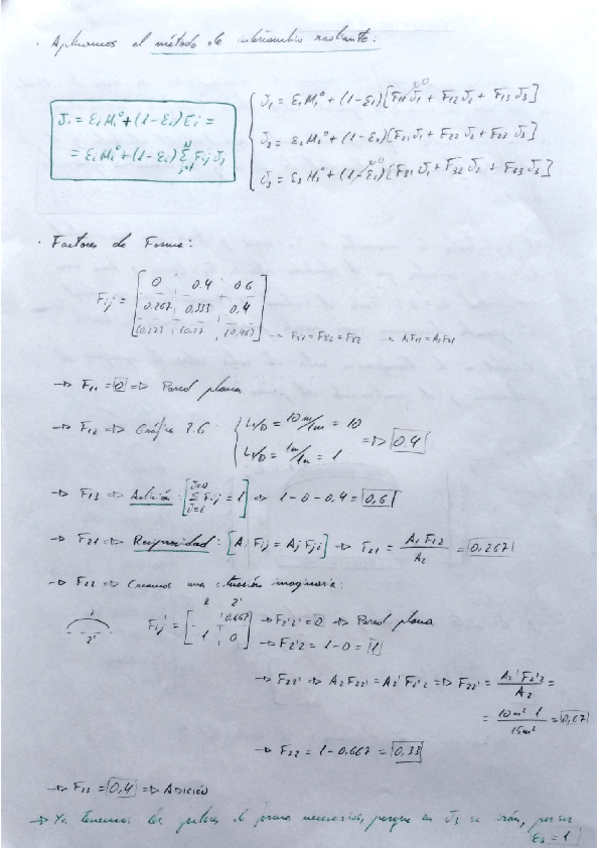 · Aplicamos el método de intercambio radiante.
Ji = εi Mi° + (1-εi) Ei =
= εi Mi° + (1-εi) Σ Fij Jj
J1 = ε1 M1° + (1-ε1) [F11 J1 + F12 J2 + F13 J3]
J2 = ε2 M2° + (1-ε2) [F21 J1 + F22 J2 + F23 J3]
J3 = ε3 M3° + (1-ε3) [F31 J1 + F32 J2 + F33 J3]
· Factores de Forma:
Fij = [ 0 ; 0.4 ; 0.6
0.267 ; 0,333 ; 0,4
→ F11 = 0 ⇒ Pared plana
→ F12 ⇒ Gráfica 7.6: { L1/D = 10m/1m = 10
L2/D = 1m/1m = 1 ⇒ 0.4
→ F13 ⇒ Adición: [Σ Fij = 1] ⇒ 1-0-0,4 = 0,6
→ F21 ⇒ Reciprocidad: [Ai Fij = Aj Fji] ⇒ F21 = A1 F12 / A2 = 0,267
→ F22 ⇒ Creamos una situación imaginaria:
2
2'
2 2'
Fij' = [ - ; 0.667
1 ; 0 ]
→ F2'2' = 0 ⇒ Pared plana
→ F2'2 = 1-0 = 1
→ F22' ⇒ A2 F22' = A2' F2'2 ⇒ F22' = A2' F2'2 / A2 =
= 10m² · 1 / 15m² = 0,67
→ F22 = 1-0.667 = 0,33
→ F23 = 0,4 ⇒ ADICIÓN
→ Ya tenemos los factores de forma necesarios, porque en J3 se irán, por ser
ε3 = 1